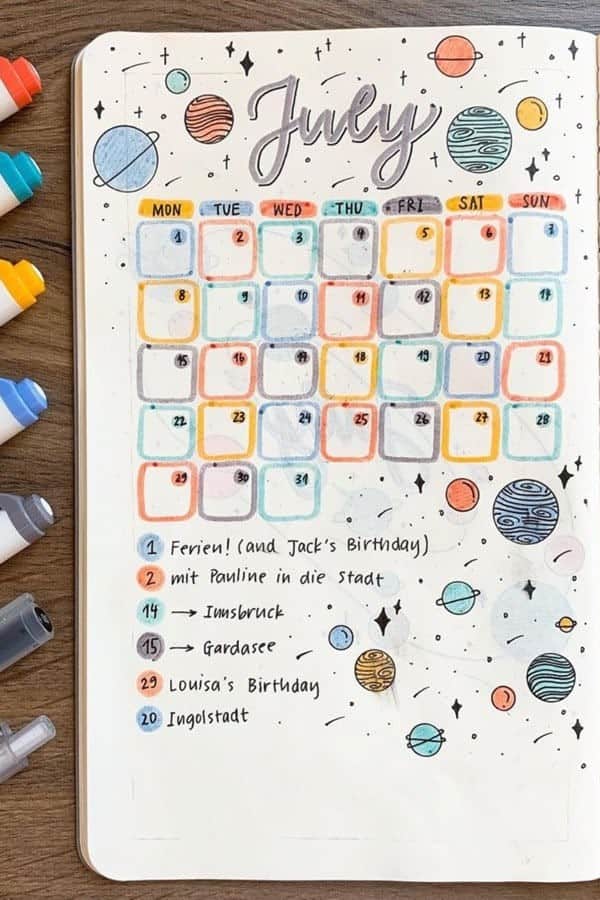 July
MON TUE WED THU FRI SAT SUN
1 2 3 4 5 6 7
8 9 10 11 12 13 14
15 16 17 18 19 20 21
22 23 24 25 26 27 28
29 30 31
1 Ferien! (and Jack's Birthday)
2 mit Pauline in die Stadt
14 → Innsbruck
15 → Gardasee
29 Louisa's Birthday
20 Ingolstadt